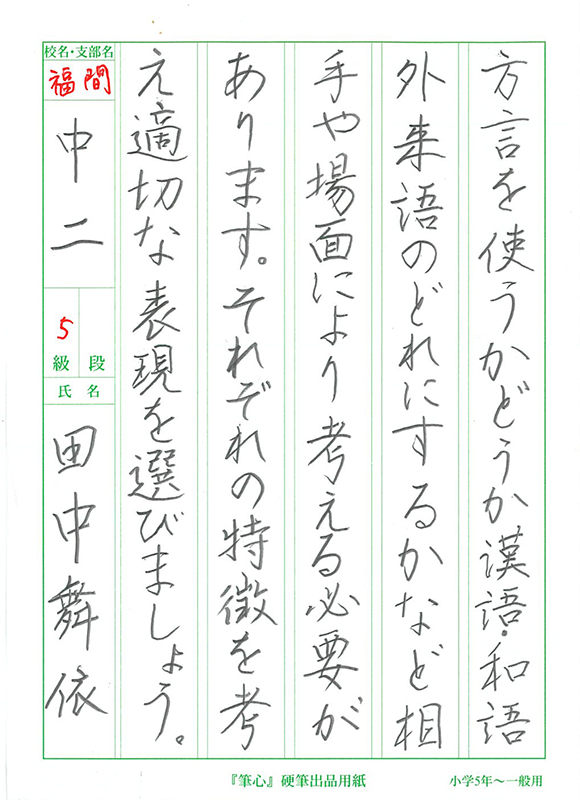 方言を使うかどうか漢語・和語
外来語のどれにするかなど相
手や場面により考える必要が
あります。それぞれの特徴を考
え適切な表現を選びましょう。
校名・支部名
福間
中二
5
級 段
氏 名
田中舞依
『筆心』硬筆出品用紙
小学5年〜一般用